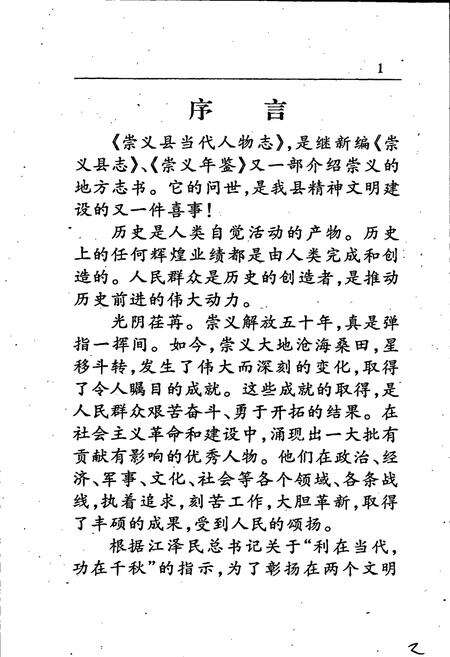 1
序 言
《崇义县当代人物志》，是继新编《崇
义县志》、《崇义年鉴》又一部介绍崇义的
地方志书。它的问世，是我县精神文明建
设的又一件喜事！
历史是人类自觉活动的产物。历史
上的任何辉煌业绩都是由人类完成和创
造的。人民群众是历史的创造者，是推动
历史前进的伟大动力。
光阴荏苒。崇义解放五十年，真是弹
指一挥间。如今，崇义大地沧海桑田，星
移斗转，发生了伟大而深刻的变化，取得
了令人瞩目的成就。这些成就的取得，是
人民群众艰苦奋斗、勇于开拓的结果。在
社会主义革命和建设中，涌现出一大批有
贡献有影响的优秀人物。他们在政治、经
济、军事、文化、社会等各个领域、各条战
线，执着追求，刻苦工作，大胆革新，取得
了丰硕的成果，受到人民的颂扬。
根据江泽民总书记关于“利在当代，
功在千秋”的指示，为了彰扬在两个文明